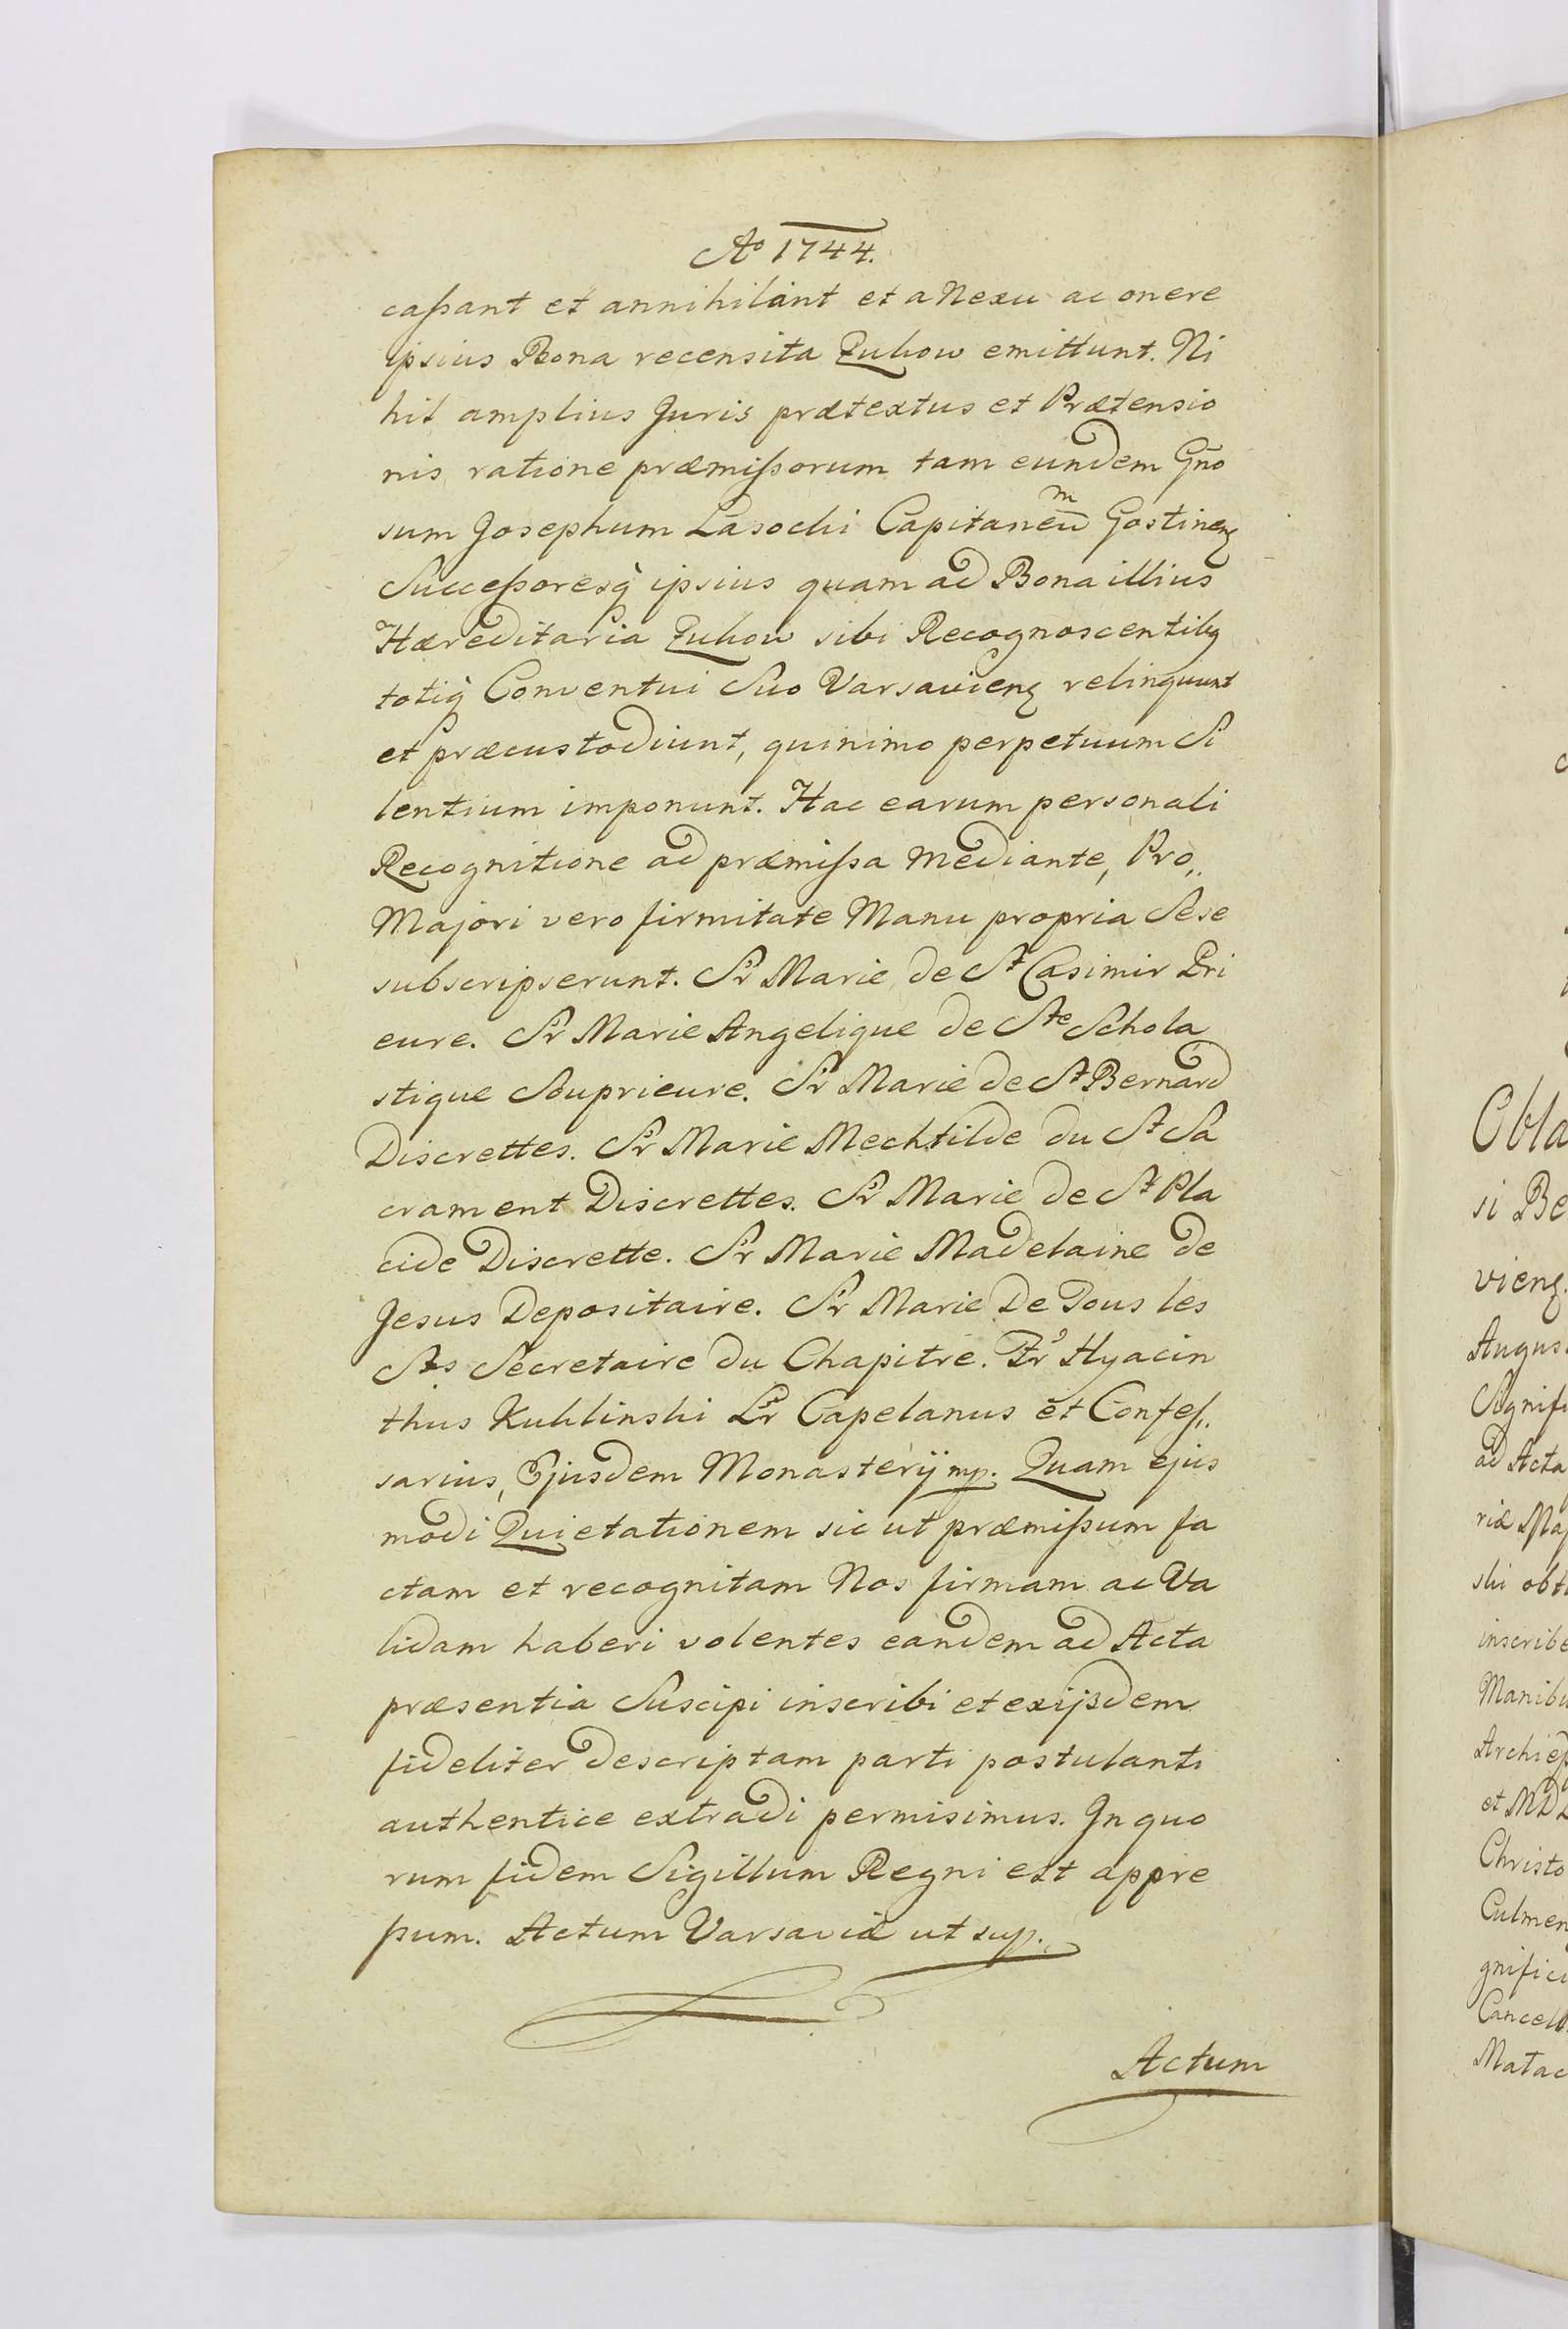 Ao 1744.
cassant et annihilant et a Nexu ac onere
ipsius Bona recensita Zukow emittunt. Ni
hil amplius Juris prætextus et Prætensio
nis ratione præmissorum tam eundem Gno
sum Josephum Lasocki Capitaneum Gostinen
Successoresq ipsius quam ad Bona illius
Hæreditaria Zukow sibi Recognoscentibq
totiq Conventui Suo Varsavien relinquunt
et præcustodiunt, quinimo perpetuum Si
lentium imponunt. Hac earum personali
Recognitione ad præmissa mediante, Pro,,
Majori vero firmitate Manu propria Sese
subscripserunt. Sr Marie de St Casimir Pri
eure. Sr Marie Angelique de Ste Schola
stique Souprieure. Sr Marie de St Bernard
Discrettes. Sr Marie Mechtilde du St Sa
crament Discrettes. Sr Marie de St Pla
cide Discrette. Sr Marie Madelaine de
Jesus Depositaire. Sr Marie De Tous les
Sts Secretaire du Chapitre. Fr Hyacin
thus Kuklinski Lr Capelanus et Confes,,
sarius, Ejusdem Monasterij mp. Quam ejus
modi Quietationem sic ut præmissum fa
ctam et recognitam Nos firmam ac Va
lidam haberi volentes eandem ad Acta
præsentia Suscipi inscribi et ex ijsdem
fideliter descriptam parti postulanti
authentice extradi permisimus. In quo
rum fidem Sigillum Regni est appre
ssum. Actum Varsaviæ ut sup.
Actum
Obla
si Be
vien.
Augus
Signifi
ad Acta
riæ Maj
ski obt
inscribe
Manibu
Archiep
et MDL
Christo
Culmen
gnifici
Cancell
Matac